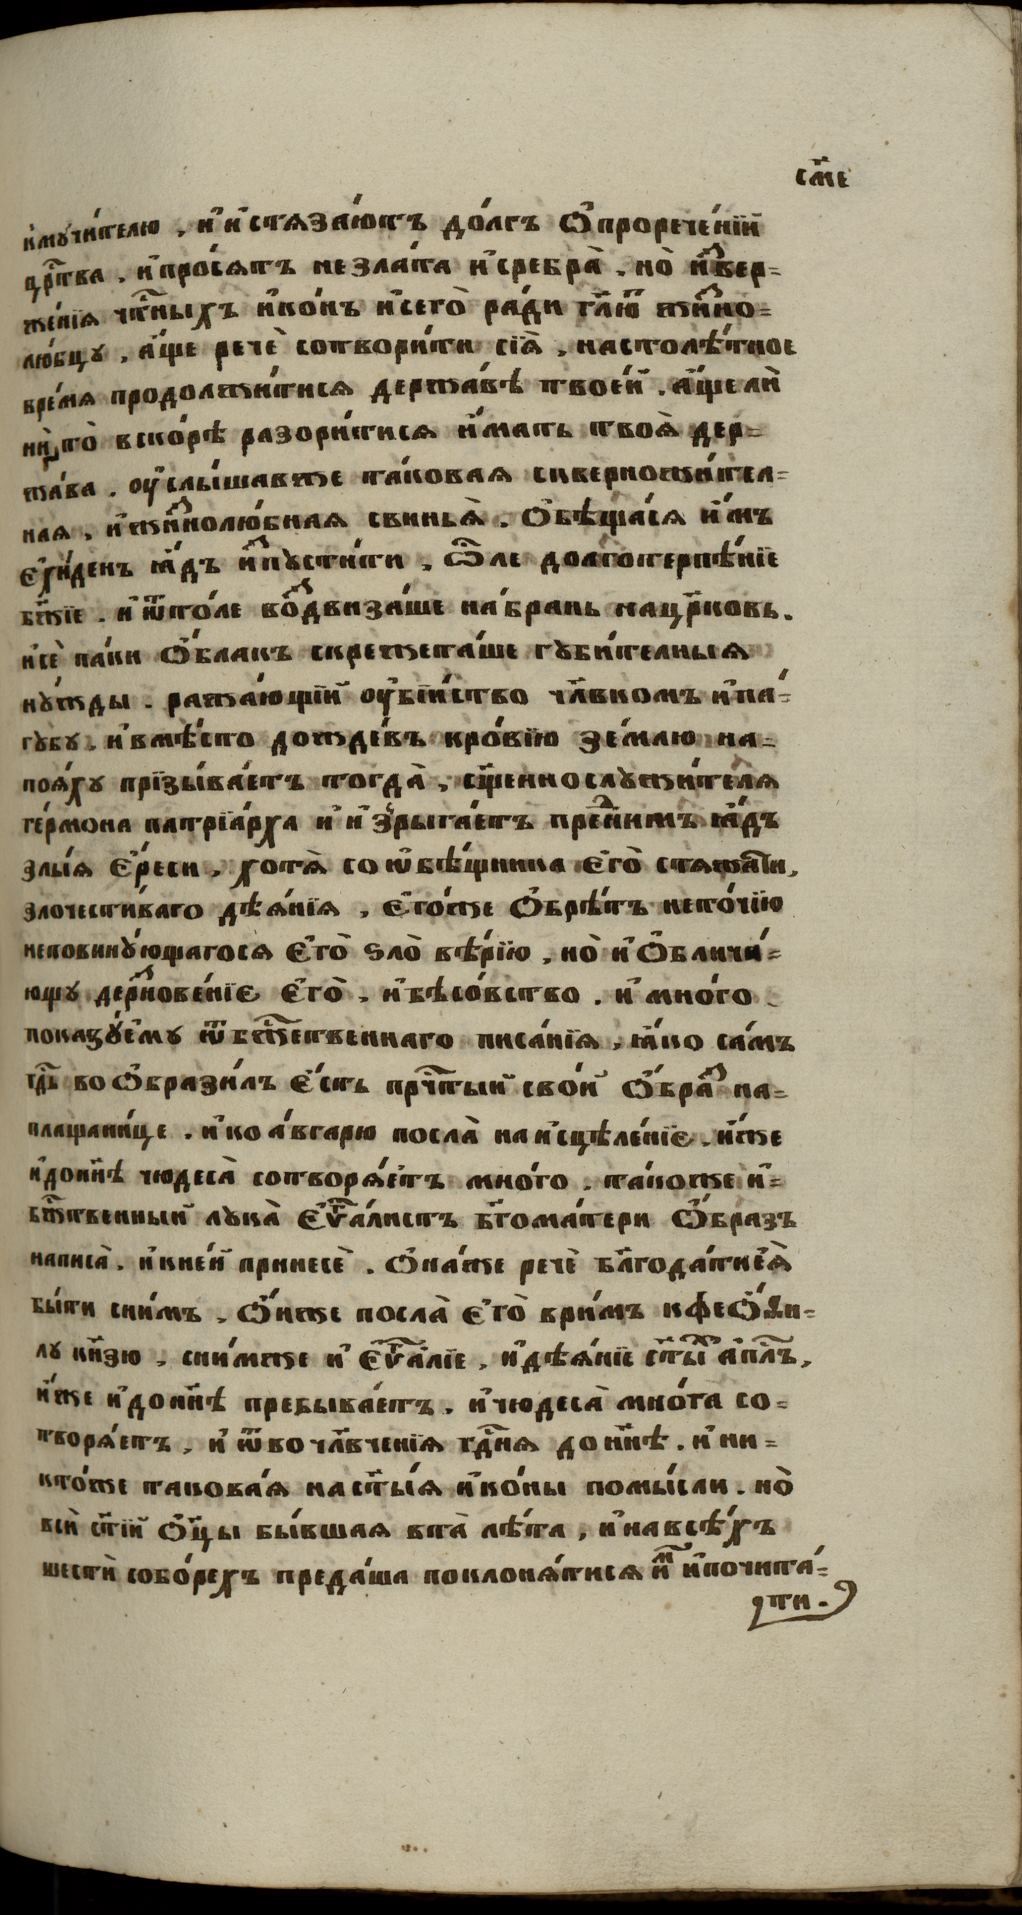 сл҃ме
кмꙋчи́телю , и҆ и҆стѧза́ютъ до́лгъ ѡ҆ проречє́нїй
цр҃ства . и҆ про́сѧтъ не зла́та и҆ сребра̀ . но̀ и҆звер-
же́нїѧ чт҃ныхъ и҆ко́нъ и҆ сего̀ ра́ди гл҃ю жи҆дно-
лю́бцꙋ , а҆́ще речѐ сотвори́ти сїѧ̀ , на столѣ́тное
вре́мѧ продолжи́тисѧ держа́вѣ твое́й . а҆́ще ли̇
нѝ то̀ вско́рѣ разори́тисѧ и҆́мать твоѧ̀ дер-
жа́ва . ᲂу҆слы́шавже такова́ѧ скверножи́тел-
наѧ , и҆ жи҆долю́бнаѧ свиньѧ̀ . ѻ҆бѣща́сѧ и҆́мъ
є҆хи́денъ ꙗ҆́дъ и҆спꙋсти́ти , ѽле долготерпѣ́нїе
бж҃їе . и҆ ѿто́ле воздвиза́ше на́ брань на цр҃ковь .
и҆ сѐ па́ки ѻ҆́блакъ скрежета́ше гꙋби́телныѧ
нꙋ́жды . ража́ющїй ᲂу҆бі́йство чл҃вкомъ и҆ па́-
гꙋбꙋ . и҆ вмѣ́сто дожде́въ кро́вїю зе́млю на-
поѧ́хꙋ призыва́етъ тогда̀ , сщ҃еннослꙋжи́телѧ
ге́рмона патрїа́рха и҆ и҆зрыга́етъ пре́д ни́мъ ꙗ҆́дъ
злы́ѧ є҆́реси . хотѧ̀ со ѡ҆бѣ́щника є҆го̀ стѧжа́ти ,
злочести́ваго дѣѧ́нїѧ , є҆го́же ѻ҆брѣ́тъ не то́чїю
неповинꙋ́ющагосѧ є҆го̀ ѕло̀ вѣ́рїю , но̀ и҆ ѻ҆бличи́-
ющꙋ дерзнове́нїє є҆го̀ , и҆ бѣсо́вство . и҆ мно́го
показꙋ́емꙋ ѿ бж҃ественнаго писа́нїѧ , ꙗ҆́ко са́мъ
гд҃ь воѻбрази́лъ є҆́сть пречт҃ый свой ѻ҆́браз на-
плащани́це . и҆ ко а҆вгарю посла̀ на и҆сцѣле́нїє . и҆́же
и҆ до нн҃ѣ чюдеса̀ сотворѧ́етъ мно́го . та́коже и҆
бж҃твенный лꙋка̀ є҆ѵⷢ҇а́листъ бг҃ома́тери ѻ҆́бразъ
написа̀ . и҆ к не́й принесѐ . ѻ҆на́же речѐ бл҃года́ти є҆ѧ̀
бы́ти с ни́мъ . ѻ҆́нже посла̀ є҆го̀ в ри́мъ к феѻ҆́фи-
лꙋ кн҃зю , с ни́мже и҆ є҆ѵⷢ҇а́лїе , и҆ дѣѧ́нїе ст҃ыхъ а҆пл҃ъ ,
и҆́же и҆ до нн҃ѣ пребыва́етъ . и҆ чюдеса̀ мно́га со-
творѧ́етъ , и҆ ѿ вочл҃вченїѧ гд҃нѧ до нн҃ѣ . и҆ ни-
кто́же такова́ѧ на ст҃ы́ѧ и҆ко́ны помы́сли . но̀
всѝ ст҃їй ѻ҆ц҃ы бы́вшаѧ в та̀ лѣ́та , и҆ на всѣ́хъ
шестѝ собо́рехъ преда́ша поклонѧ́тисѧ и҆м и҆ почита́-
ти .